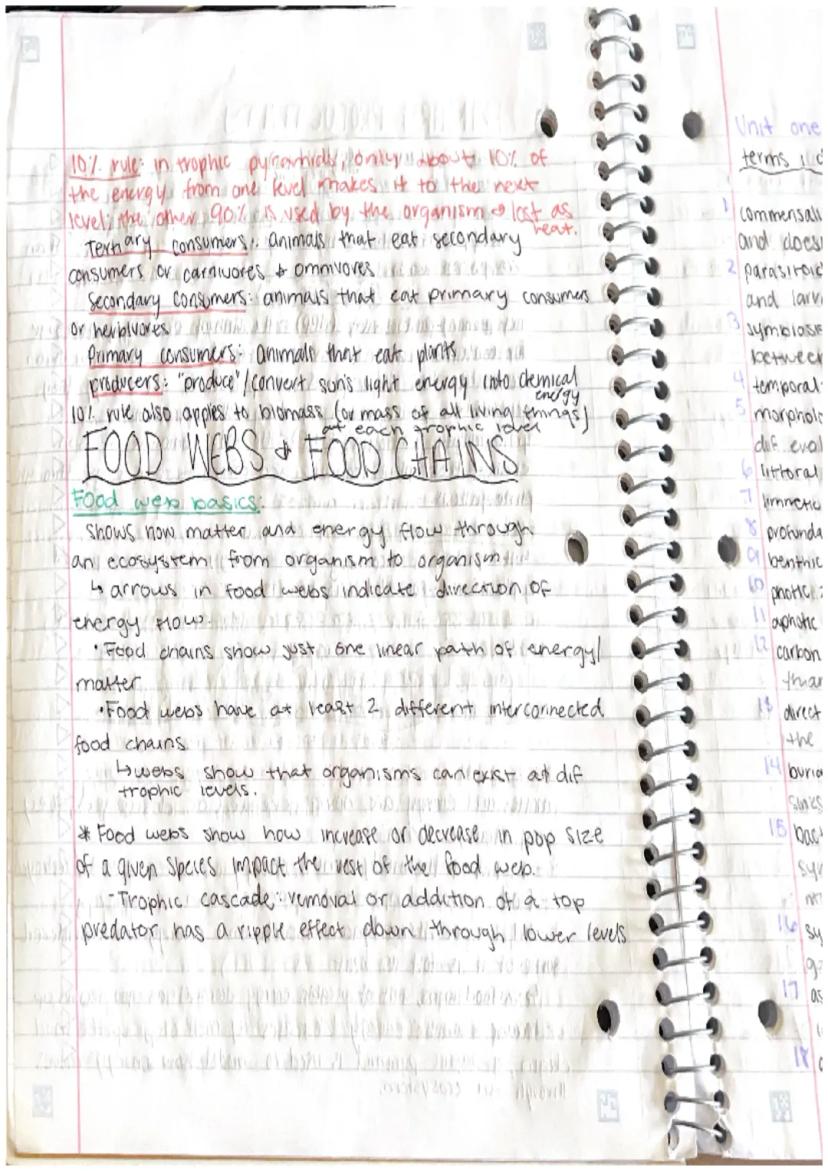 10% rule: in trophic pyramids, only about 10% of
the energy from one level makes it to the next
level; the other 90% is used by the organism & lost as
heat.
Tertiary consumers: animals that eat secondary
consumers or carnivores & omnivores
Secondary Consumers: animals that eat primary consumers
or herbivores
Primary consumers: animals that eat plants
producers: "produce"/convert sun's light energy into chemical
energy
10% rule also apples to biomass (or mass of all living things)
at each trophic level
FOOD WEBS & FOOD CHAINS
Food web basics:
shows how matter and energy flow through
an ecosystem, from organism to organism
↳ arrows in food webs indicate direction of
energy flow.
•Food chains show just one linear path of energy/
matter
•Food webs have at least 2 different interconnected
food chains
↳webs show that organisms can exist at dif
trophic levels.
* Food webs show how increase or decrease in pop size
of a given species impact the rest of the food web.
-Trophic cascade: removal or addition of a top
predator has a ripple effect down through lower levels
Unit one
terms
1 commensali
and does
2 parasitoid
and larv
3 symbiosis
between
4 temporal
5 morpholo
dif eval
6 littoral
7 limnetic
8 profunda
9 benthic
10 photic
11 aphotic
12 carbon
than
13 direct
the
14 buria
15 bac
16 sy
17 as
18